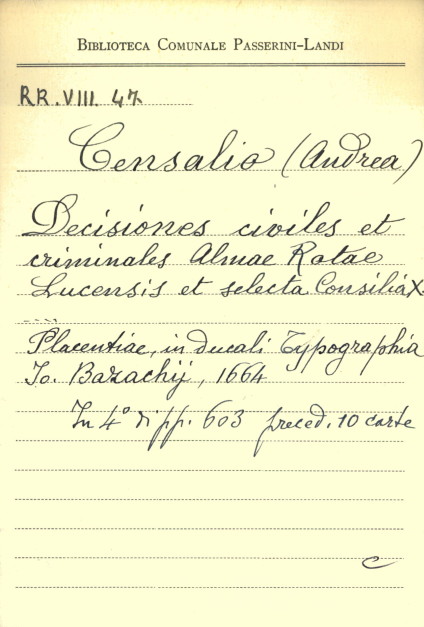 BIBLIOTECA COMUNALE PASSERINI-LANDI
RR. VIII. 47.
Censalio (Andrea)
Decisiones civiles et
criminales Almae Rotae
Lucensis et selecta Consilia X.
Placentiae, in ducali Typographia
Jo. Bazachij, 1664
In 4° di pp. 603 preced. 10 carte
C